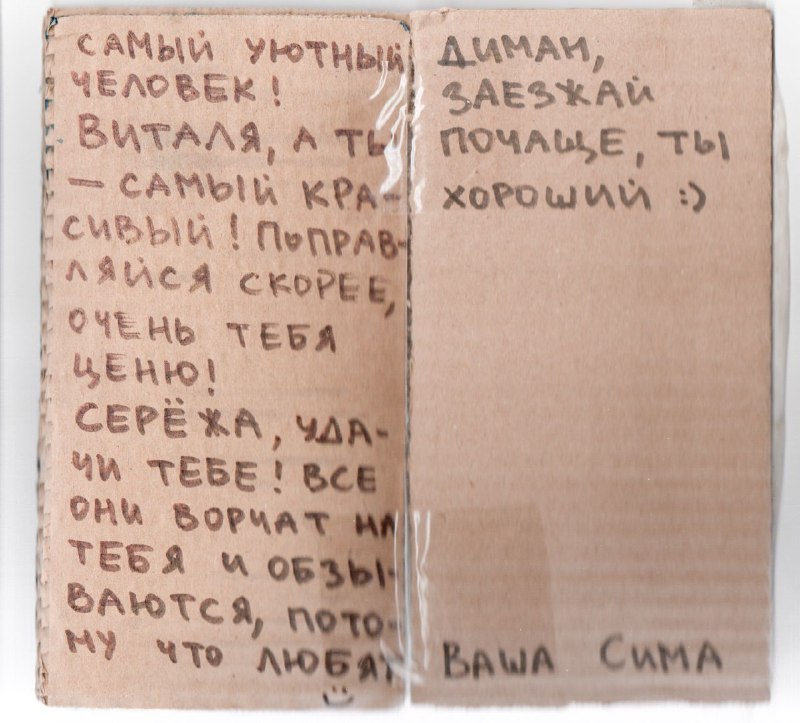 САМЫЙ УЮТНЫЙ
ЧЕЛОВЕК!
ВИТАЛЯ, А ТЫ
— САМЫЙ КРА-
СИВЫЙ! ПОПРАВ-
ЛЯЙСЯ СКОРЕЕ,
ОЧЕНЬ ТЕБЯ
ЦЕНЮ!
СЕРЁЖА, УДА-
ЧИ ТЕБЕ! ВСЕ
ОНИ ВОРЧАТ НА
ТЕБЯ И ОБЗЫ-
ВАЮТСЯ, ПОТО-
МУ ЧТО ЛЮБЯТ
ДИМАН,
ЗАЕЗЖАЙ
ПОЧАЩЕ, ТЫ
ХОРОШИЙ :)
ВАША СИМА